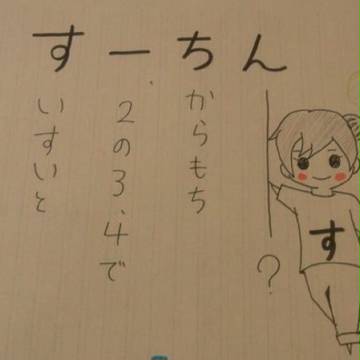 すーちん
からもち
2の3、4で
いすいと
?
す